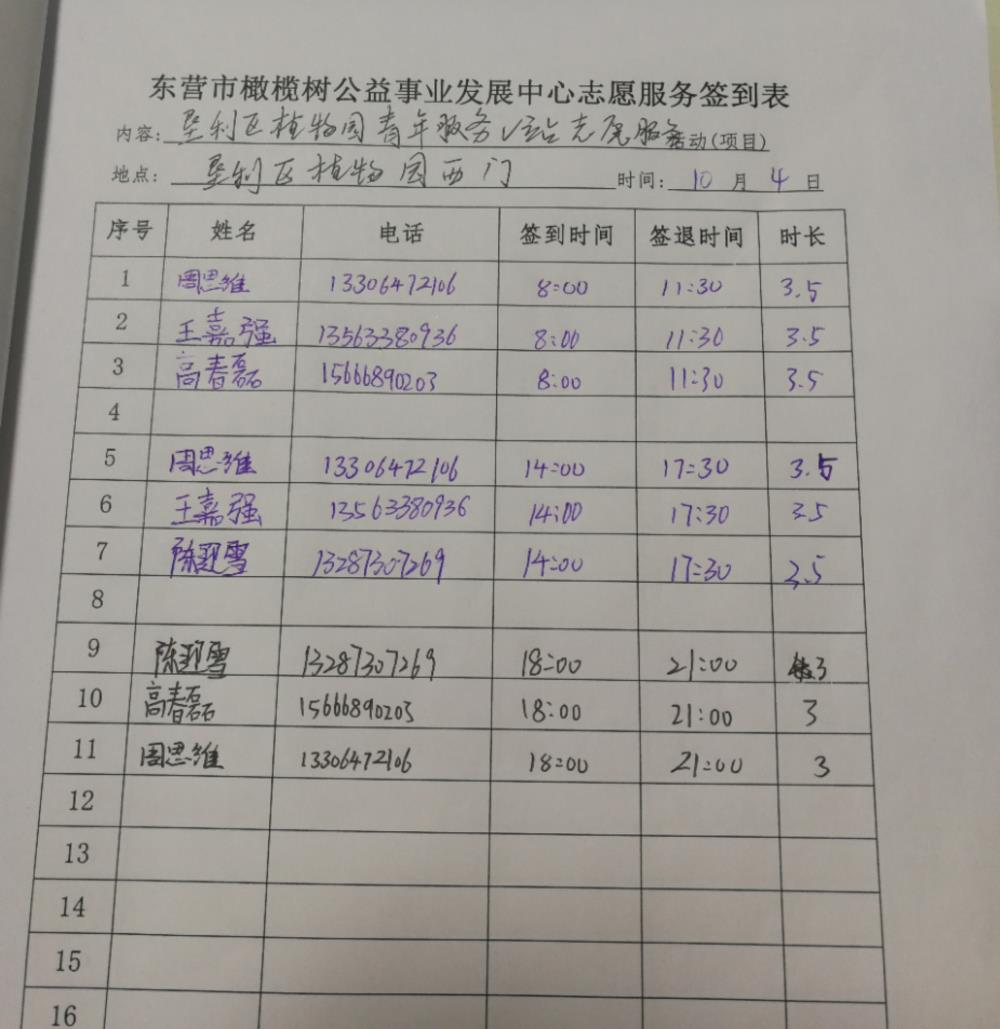 东营市橄榄树公益事业发展中心志愿服务签到表
内容：垦利区植物园青年服务V站志愿服务活动（项目）
地点：垦利区植物园西门 时间：10月4日
序号 姓名 电话 签到时间 签退时间 时长
1 周思维 13306472106 8:00 11:30 3.5
2 王嘉强 13563380936 8:00 11:30 3.5
3 高春磊 15666890203 8:00 11:30 3.5
4
5 周思维 13306472106 14:00 17:30 3.5
6 王嘉强 13563380936 14:00 17:30 3.5
7 陈翠雪 13287307269 14:00 17:30 3.5
8
9 陈翠雪 13287307269 18:00 21:00 3
10 高春磊 15666890203 18:00 21:00 3
11 周思维 13306472106 18:00 21:00 3
12
13
14
15
16